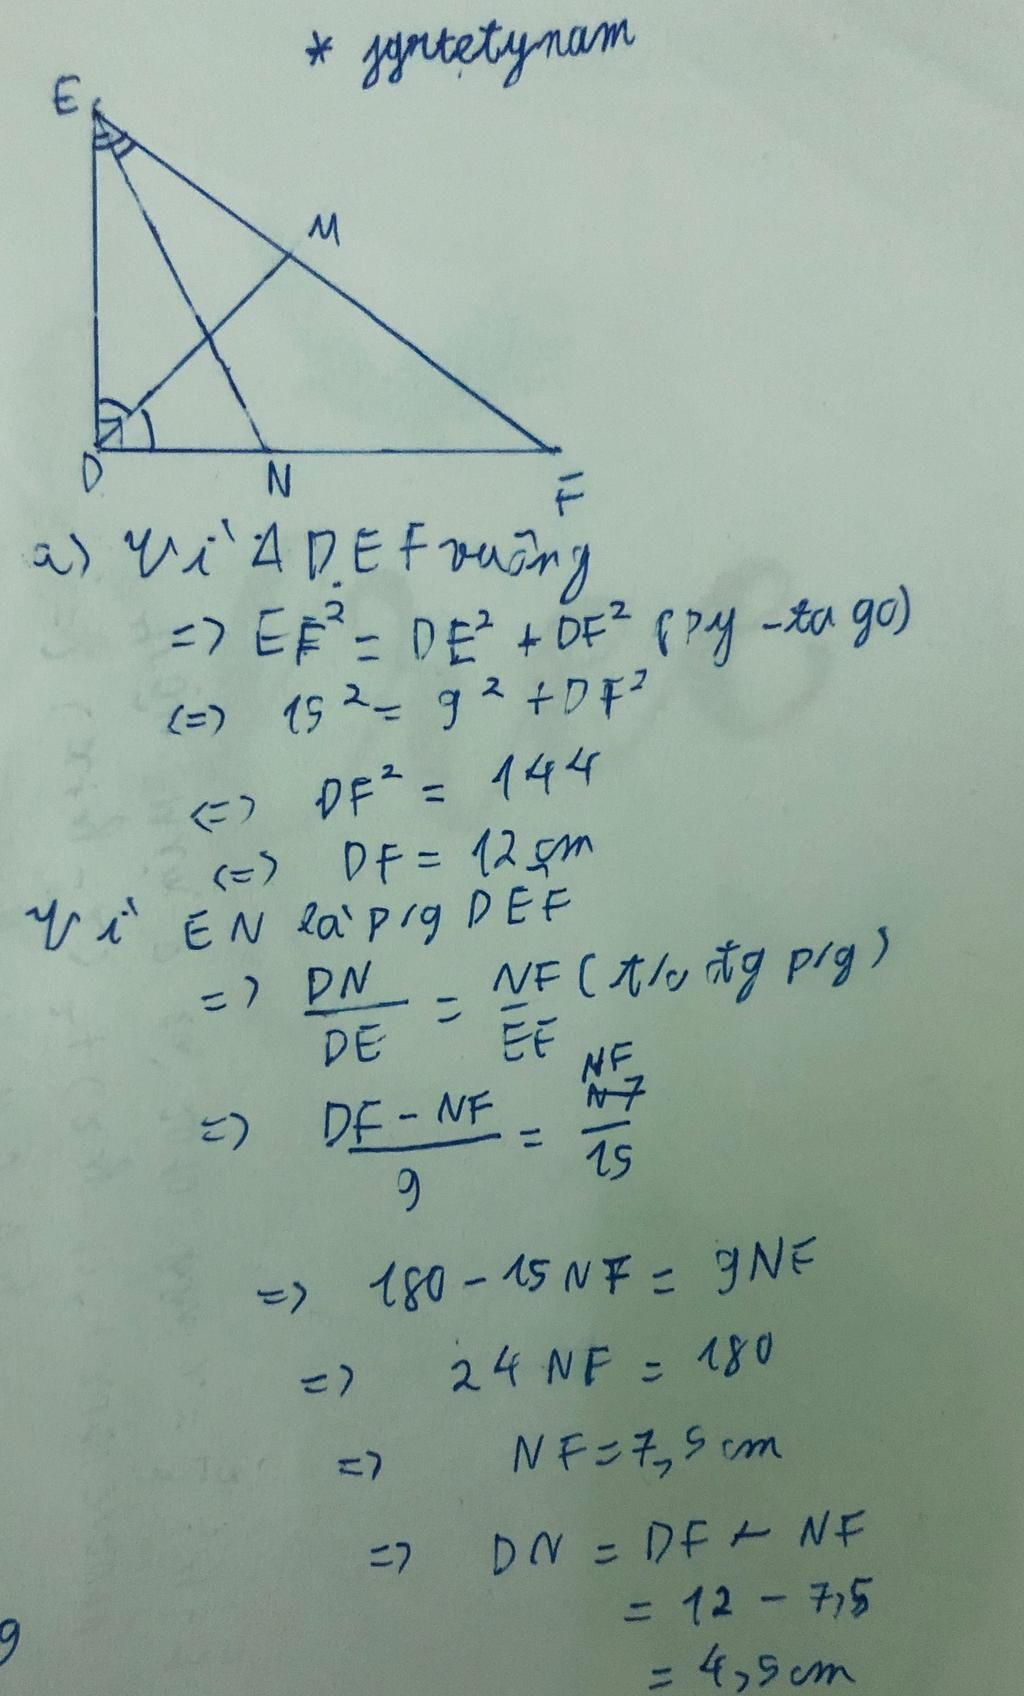 * jgrtetynam
E
M
D
N
F
a) Vì Δ DEF vuông
=> EF² = DE² + DF² (py-tago)
<=> 15² = 9² + DF²
<=> DF² = 144
<=> DF = 12 cm
Vì EN là p/g DEF
=> DN/DE = NF/EF (t/c đg p/g)
=> DF - NF/9 = NF/15
=> 180 - 15NF = 9NF
=> 24 NF = 180
=> NF = 7,5 cm
=> DN = DF - NF
= 12 - 7,5
= 4,5 cm
9